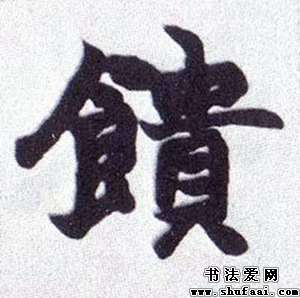 饋
书法爱网
www.shufaai.com